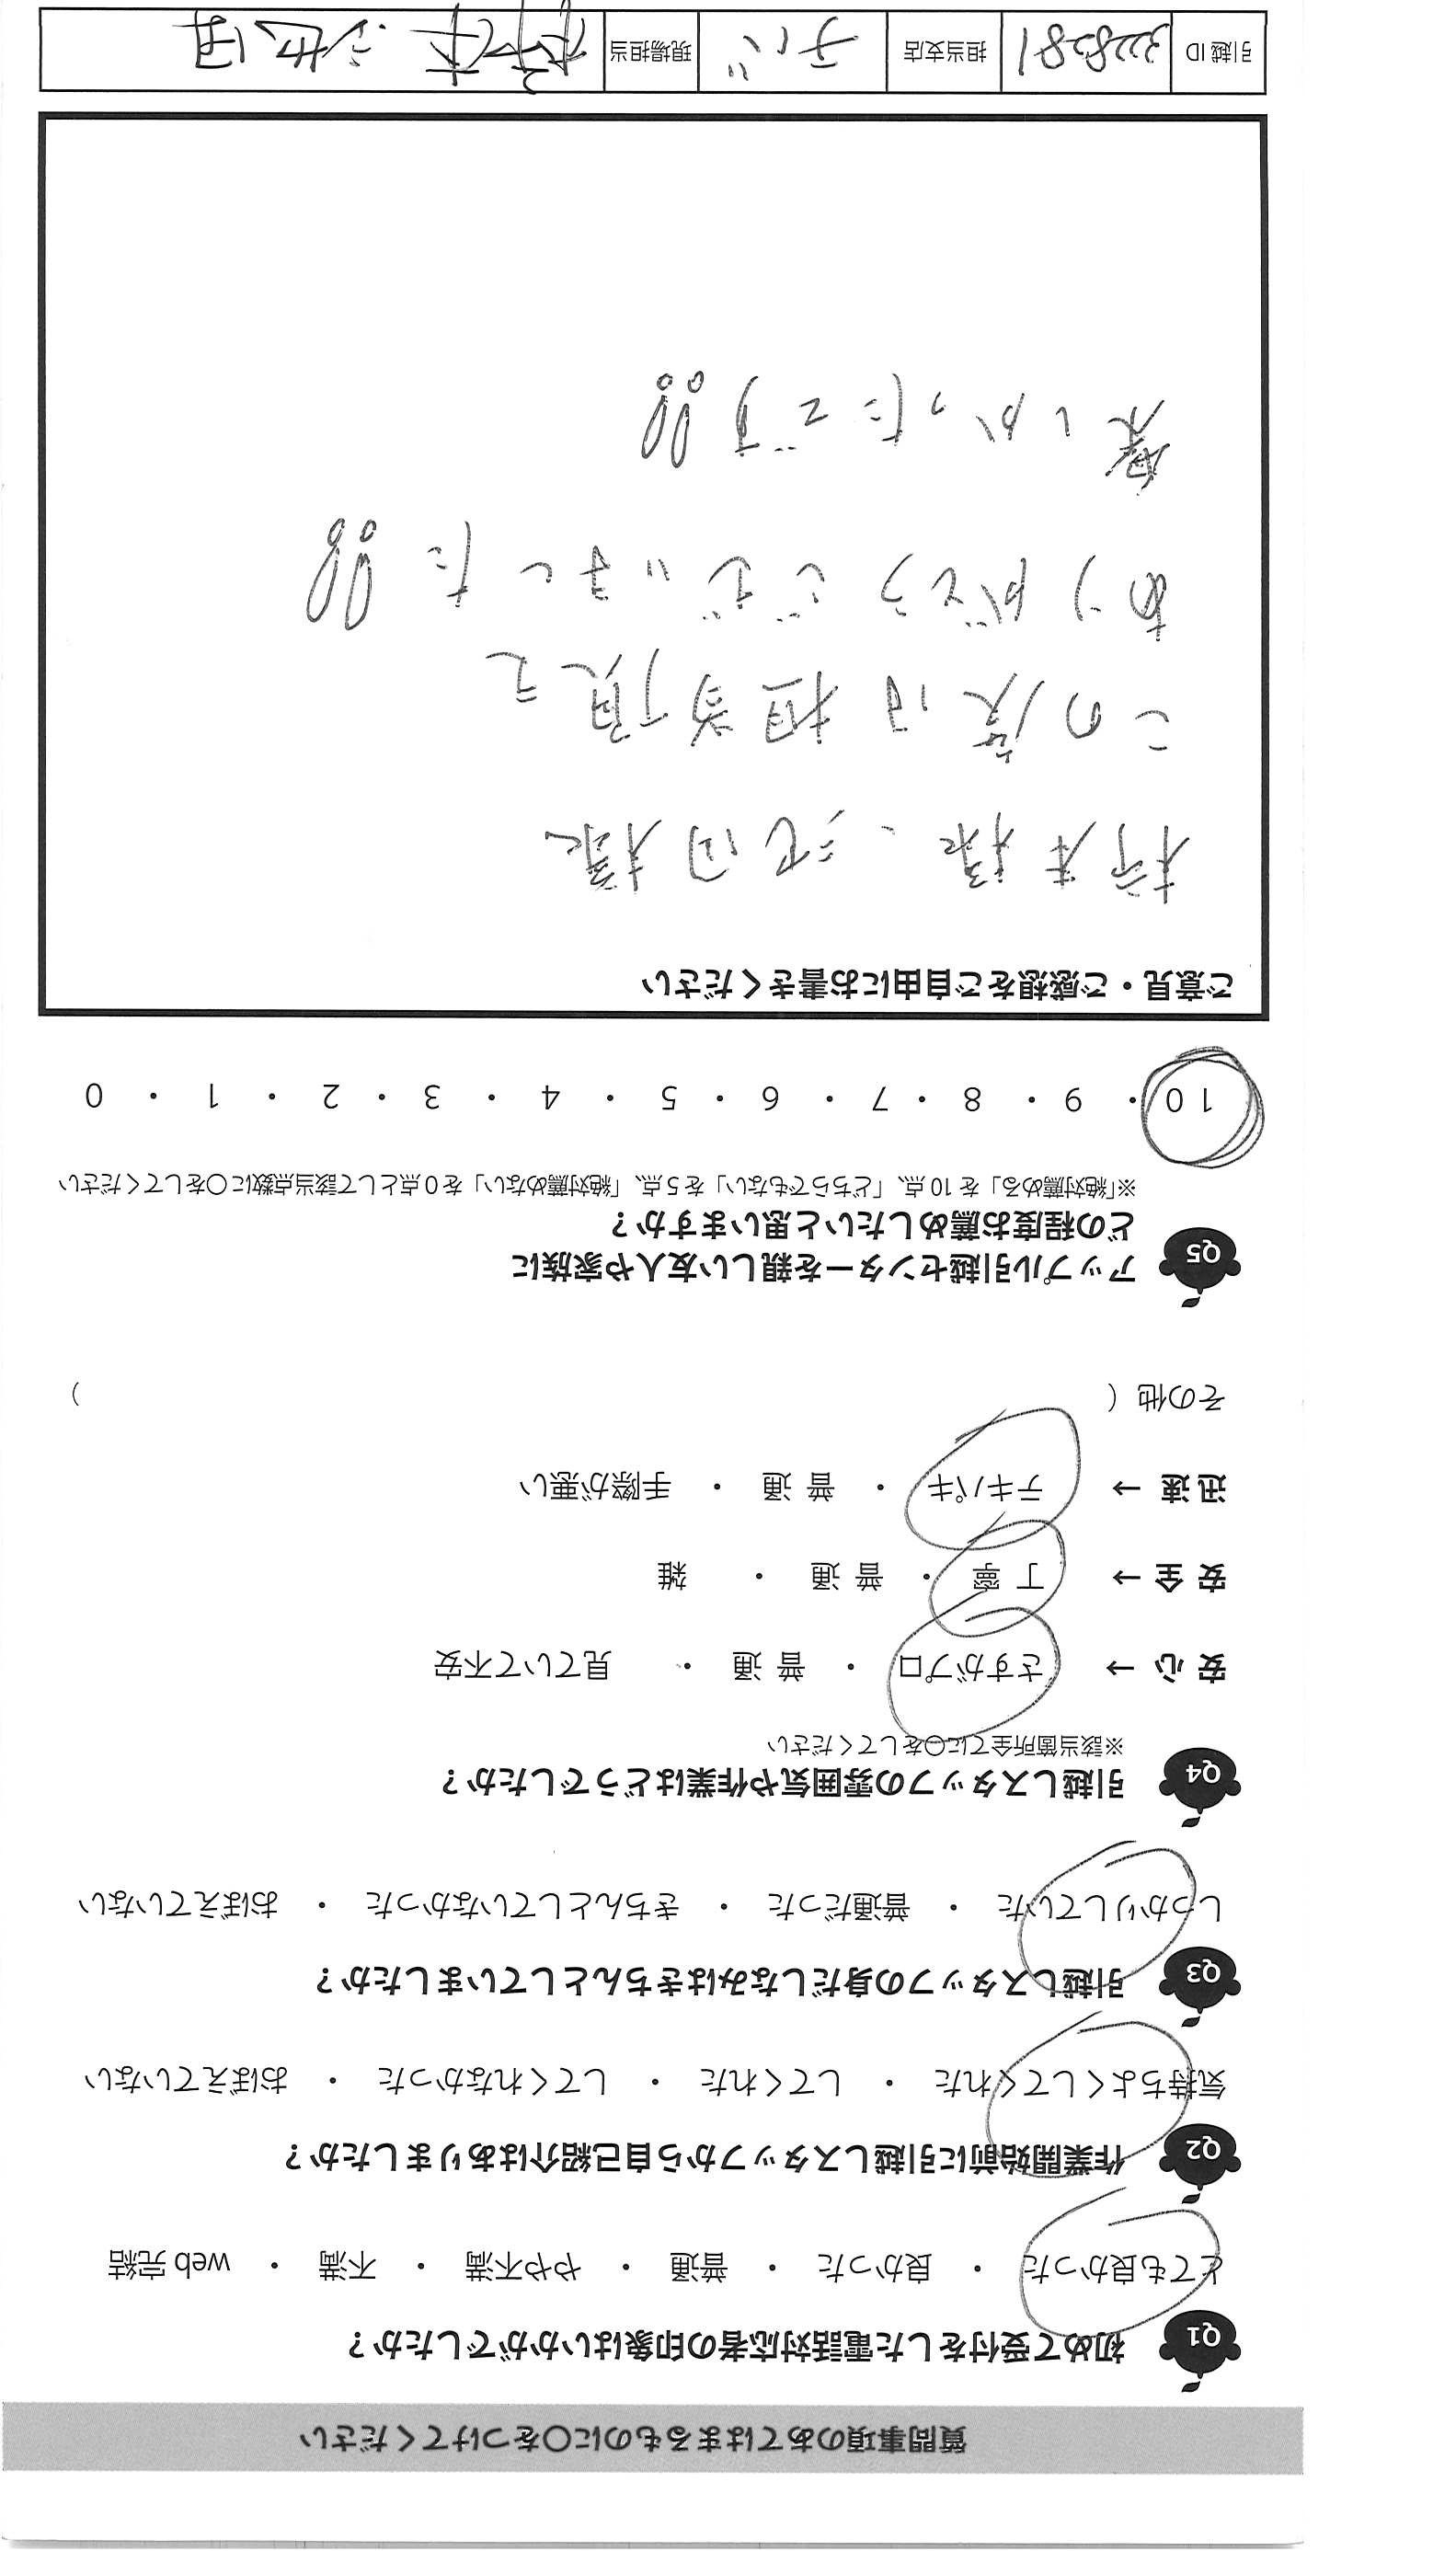 質問事項のあてはまるものに○をつけてください
Q1 初めて受付をした電話対応者の印象はいかがでしたか？
とても良かった ・ 良かった ・ 普通 ・ やや不満 ・ 不満 ・ web 完結
Q2 作業開始前に引越しスタッフから自己紹介はありましたか？
気持ちよくしてくれた ・ してくれた ・ してくれなかった ・ おぼえていない
Q3 引越しスタッフの身だしなみはきちんとしていましたか？
しっかりしていた ・ 普通だった ・ きちんとしていなかった ・ おぼえていない
Q4 引越しスタッフの雰囲気や作業はどうでしたか？
※該当箇所全てに○をしてください
安 心 → さすがプロ ・ 普 通 ・ 見ていて不安
安 全 → 丁 寧 ・ 普 通 ・ 雑
迅 速 → テキパキ ・ 普 通 ・ 手際が悪い
その他（ ）
Q5 アップル引越センターを親しい友人や家族に
どの程度お薦めしたいと思いますか？
※「絶対薦める」を 10 点、「どちらでもない」を 5 点、「絶対薦めない」を 0 点として該当点数に○をしてください
10 ・ 9 ・ 8 ・ 7 ・ 6 ・ 5 ・ 4 ・ 3 ・ 2 ・ 1 ・ 0
ご意見・ご感想をご自由にお書きください
様、様
この度は担当頂えて
ありがとうございました!!
楽しかったです!!
引越 ID 3228281 担当支店 チバ 現場担当